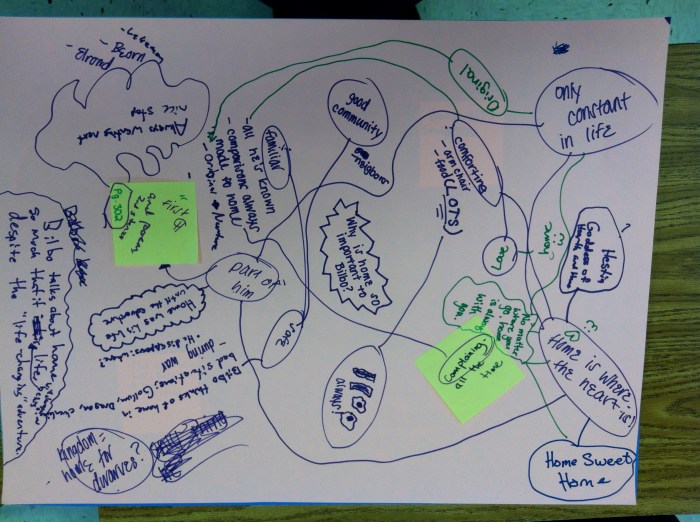 only
constant
in life
Original
good
community
- neighbors
comforting
- arm chair
- food (LOTS)
familiar
- all he's known
- comparisons always
made to home
- Origin of
Always wanting next
nice stop
- Beorn
- Elrond
"First
Pg. 302
part of
him
Why is home so
important to
Bilbo?
love
home
Goddess of
Hearth and
Home is where
the heart is!
No matter
where you
go, home
is always
with
you.
Complains
all the
time
Home Sweet
Home
safe
always!
Home was his life
until the adventure
- Bilbo thinks of home in
bad situations: Gollum, Dragon,
during war
Bilbo talks about home
so much that it
despite the "life changing" adventure.
Kingdom
= for
dwarves?